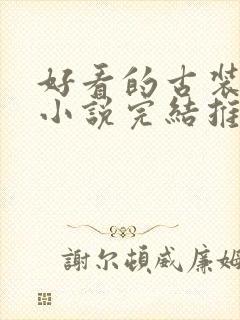 好看的古装
小說完結推
謝尔頓威廉姆